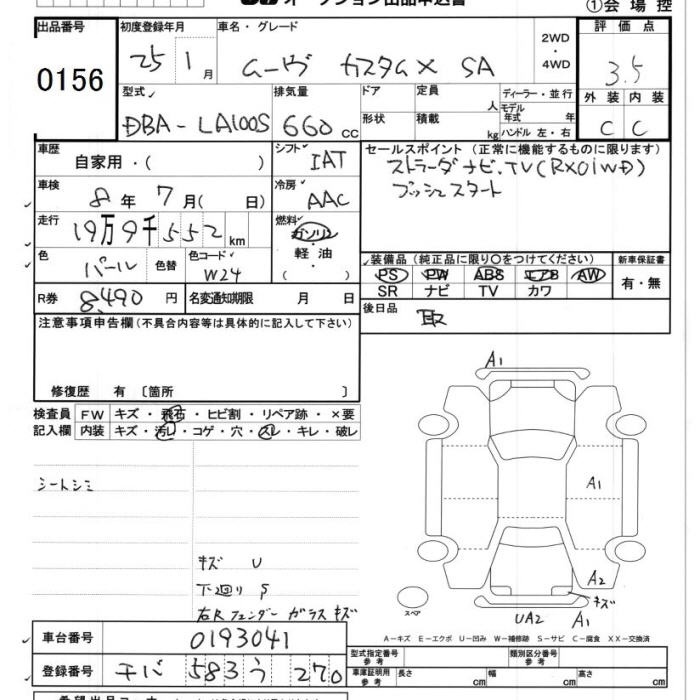 オークション出品申込書
①会場控
出品番号 0156
初度登録年月 25 1月
車名・グレード ムーヴ カスタムX SA
2WD・4WD
評価点 3.5
外装 C 内装 C
型式 DBA-LA100S
排気量 660 cc
ドア 形状
定員 人 積載 kg
ディーラー・並行
モデル年式 年
ハンドル 左・右
車歴 自家用・( )
シフト IAT
セールスポイント(正常に機能するものに限ります)
ストラーダナビ.TV(RX01WD)
プッシュスタート
車検 8年 7月( 日)
冷房 AAC
走行 19万9千552km
燃料 ガソリン・軽油・( )
色 パール 色替 色コード W24
装備品(純正品に限り〇をつけてください)
PS PW ABS エアB AW
SR ナビ TV カワ
新車保証書 有・無
R券 8,490円
名変通知期限 月 日
後日品 取
注意事項申告欄(不具合内容等は具体的に記入して下さい)
修復歴 有〔箇所 〕
検査員記入欄
FW キズ・飛石・ヒビ割・リペア跡・×要
内装 キズ・汚れ・コゲ・穴・スレ・キレ・破レ
シートシミ
キズ U
下廻り S
右Rフェンダー ガラスキズ
A1
A1
A2
キズ
UA2 A1
スペア
A-キズ E-エクボ U-凹み W-補修跡 S-サビ C-腐食 XX-交換済
車台番号 0193041
登録番号 583 う 270
型式指定番号 参考 類別区分番号 参考
車庫証明用 参考 長さ cm 幅 cm 高さ cm